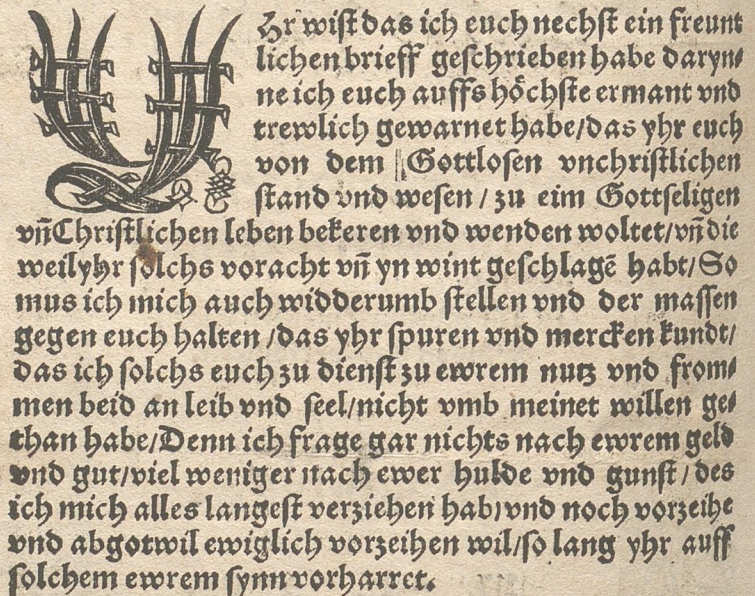 YHr wist das ich euch nechst ein freunt
lichen brieff geschrieben habe daryn⸗
ne ich euch auffs höchste ermant vnd
trewlich gewarnet habe/das yhr euch
von dem Gottlosen vnchristlichen
stand vnd wesen / zu eim Gottseligen
vn̄ Christlichen leben bekeren vnd wenden woltet/vn̄ die
weil yhr solchs voracht vn̄ yn wint geschlagē habt/So
mus ich mich auch widderumb stellen vnd der massen
gegen euch halten /das yhr spuren vnd mercken kundt/
das ich solchs euch zu dienst zu ewrem nutz vnd from⸗
men beid an leib vnd seel/nicht vmb meinet willen ge⸗
than habe/Denn ich frage gar nichts nach ewrem geld
vnd gut/viel weniger nach ewer hulde vnd gunst / des
ich mich alles langest verziehen hab/vnd noch vorzeihe
vnd abgotwil ewiglich vorzeihen wil/so lang yhr auff
solchem ewrem synn vorharret.